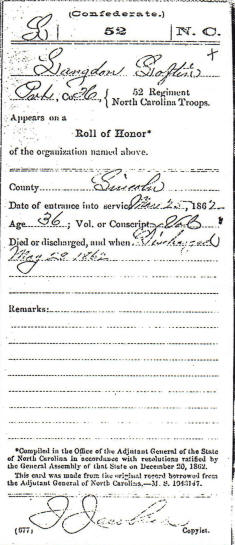 (Confederate.)
L 52 N. C.
Langdon Loflin
Co. 52 Regiment
North Carolina Troops.
Appears on a
Roll of Honor*
of the organization named above.
County Lincoln
Date of entrance into service 25, 1862
Age 36; Vol. or Conscript Vol
Died or discharged, and when Discharged
May 29 1862
Remarks:
*Compiled in the Office of the Adjutant General of the State
of North Carolina in accordance with resolutions ratified by
the General Assembly of that State on December 20, 1862.
This card was made from the original record borrowed from
the Adjutant General of North Carolina,
(677) Copyist.